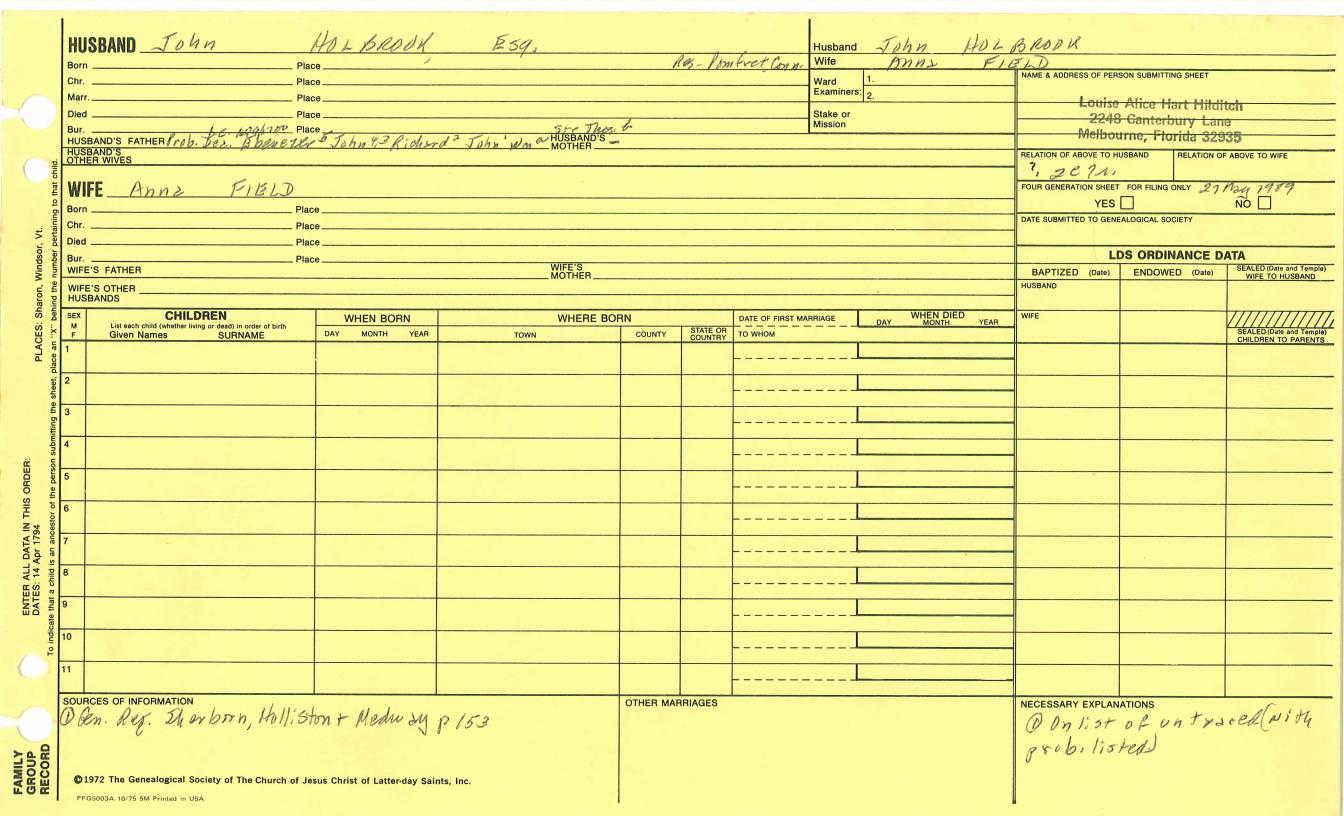 HUSBAND John HOLBROOK Esq.
Born Place Res- Pomfret, Conn.
Chr. Place
Marr. Place
Died Place
Bur. Place see Thos
HUSBAND'S FATHER Prob. Des. Ebenezer⁵ John⁴³ Richard² John¹ HUSBAND'S MOTHER —
HUSBAND'S OTHER WIVES
Husband John HOLBROOK
Wife Anna FIELD
Ward Examiners: 1.
2.
Stake or Mission
NAME & ADDRESS OF PERSON SUBMITTING SHEET
Louise Alice Hart Hilditch
2248 Canterbury Lane
Melbourne, Florida 32935
RELATION OF ABOVE TO HUSBAND RELATION OF ABOVE TO WIFE
FOUR GENERATION SHEET FOR FILING ONLY 27 May 1989
YES NO
DATE SUBMITTED TO GENEALOGICAL SOCIETY
WIFE Anna FIELD
Born Place
Chr. Place
Died Place
Bur. Place
WIFE'S FATHER WIFE'S MOTHER
WIFE'S OTHER HUSBANDS
LDS ORDINANCE DATA
BAPTIZED (Date) ENDOWED (Date) SEALED (Date and Temple) WIFE TO HUSBAND
HUSBAND
WIFE
SEALED (Date and Temple) CHILDREN TO PARENTS
SEX M F
CHILDREN
List each child (whether living or dead) in order of birth
Given Names SURNAME
WHEN BORN
DAY MONTH YEAR
WHERE BORN
TOWN COUNTY STATE OR COUNTRY
DATE OF FIRST MARRIAGE
TO WHOM
WHEN DIED
DAY MONTH YEAR
1
2
3
4
5
6
7
8
9
10
11
SOURCES OF INFORMATION
① Gen. Reg. Sherborn, Holliston + Medway p 153
OTHER MARRIAGES
NECESSARY EXPLANATIONS
① On list of untraced (with
prob. listed)
©1972 The Genealogical Society of The Church of Jesus Christ of Latter-day Saints, Inc.
PFGS003A 10/75 5M Printed in USA
PLACES: Sharon, Windsor, Vt.
ENTER ALL DATA IN THIS ORDER:
DATES: 14 Apr 1794
To indicate that a child is an ancestor of the person submitting the sheet, place an "X" behind the number pertaining to that child.
FAMILY
GROUP
RECORD